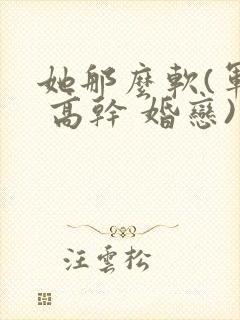 她那麼軟(軍
高幹 婚戀)
汪雲松